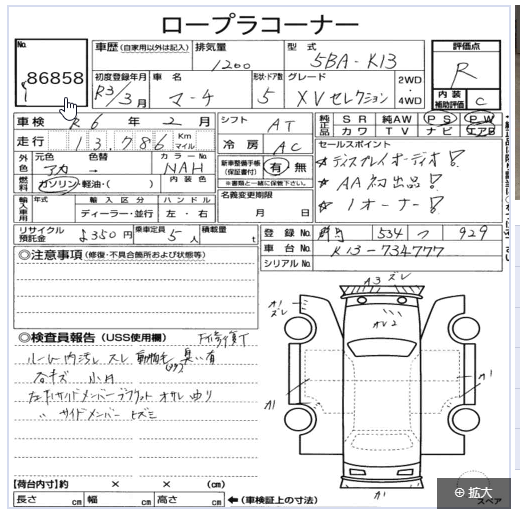 ロープラコーナー
No. 86858
車歴 (自家用以外は記入)
排気量 1200
型式 5BA-K13
評価点 R
初度登録年月 R3/3月
車名 マーチ
形状・ドア数 5
グレード XVセレクション
2WD・4WD
内装補助評価 C
車検 R6年2月
シフト AT
純正品 SR 純AW PS PW
カワ TV ナビ エアB
走行 13,786 Km マイル
冷房 AC
セールスポイント
ディスプレイオーディオ!
AA初出品!
1オーナー!
外色 元色 アカ 色替 → カラーNo. NAH
新車整備手帳(保証書付) 有・無
※書類と一緒に保管下さい。
燃料 ガソリン・軽油・( ) 内装色
名義変更期限 月 日
輸入車用 年式 輸入区分 ディーラー・並行 ハンドル 左・右
リサイクル預託金 350円
乗車定員 5人
積載量 t
登録No. 534 929
車台No. K13-734777
シリアルNo.
◎注意事項 (修復・不具合箇所および状態等)
◎検査員報告 (USS使用欄)
ルーム内汚レ スレ 動物毛 臭い有
各キズ 小凹
サイドメンバー ヒズミ
A3 ズレ
A1 ズレ
A1
A1
【荷台内寸】約 × × (cm)
長さ cm 幅 cm 高さ cm ←(車検証上の寸法)
スペア
拡大